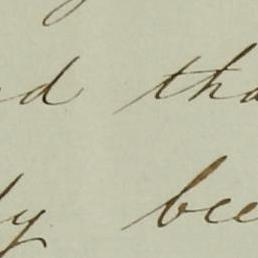 d tha
ly bee